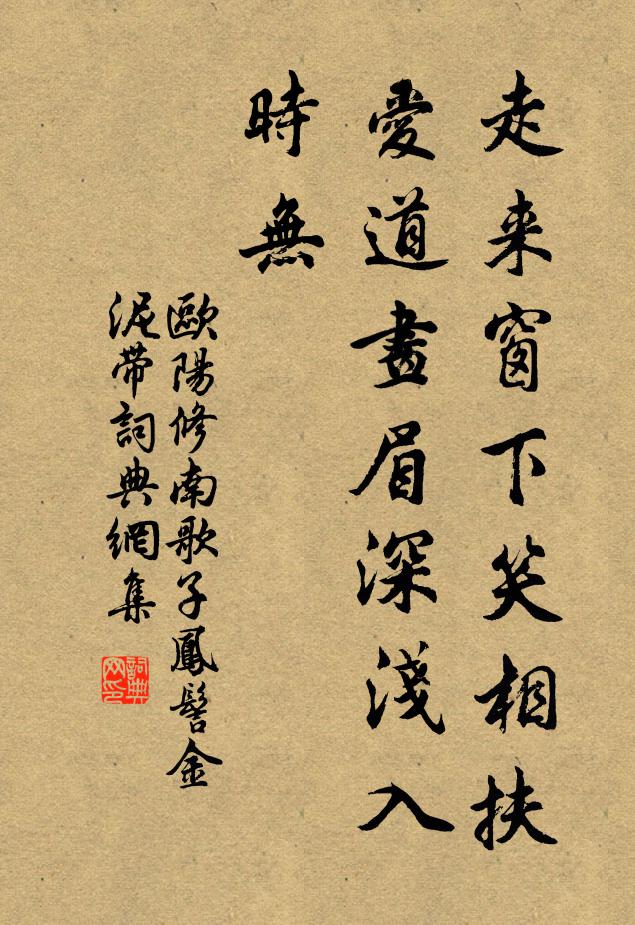 走来窗下笑相扶
愛道畫眉深淺入
時無
歐陽修南歌子鳳髻金
泥带詞典網集
詞典网印